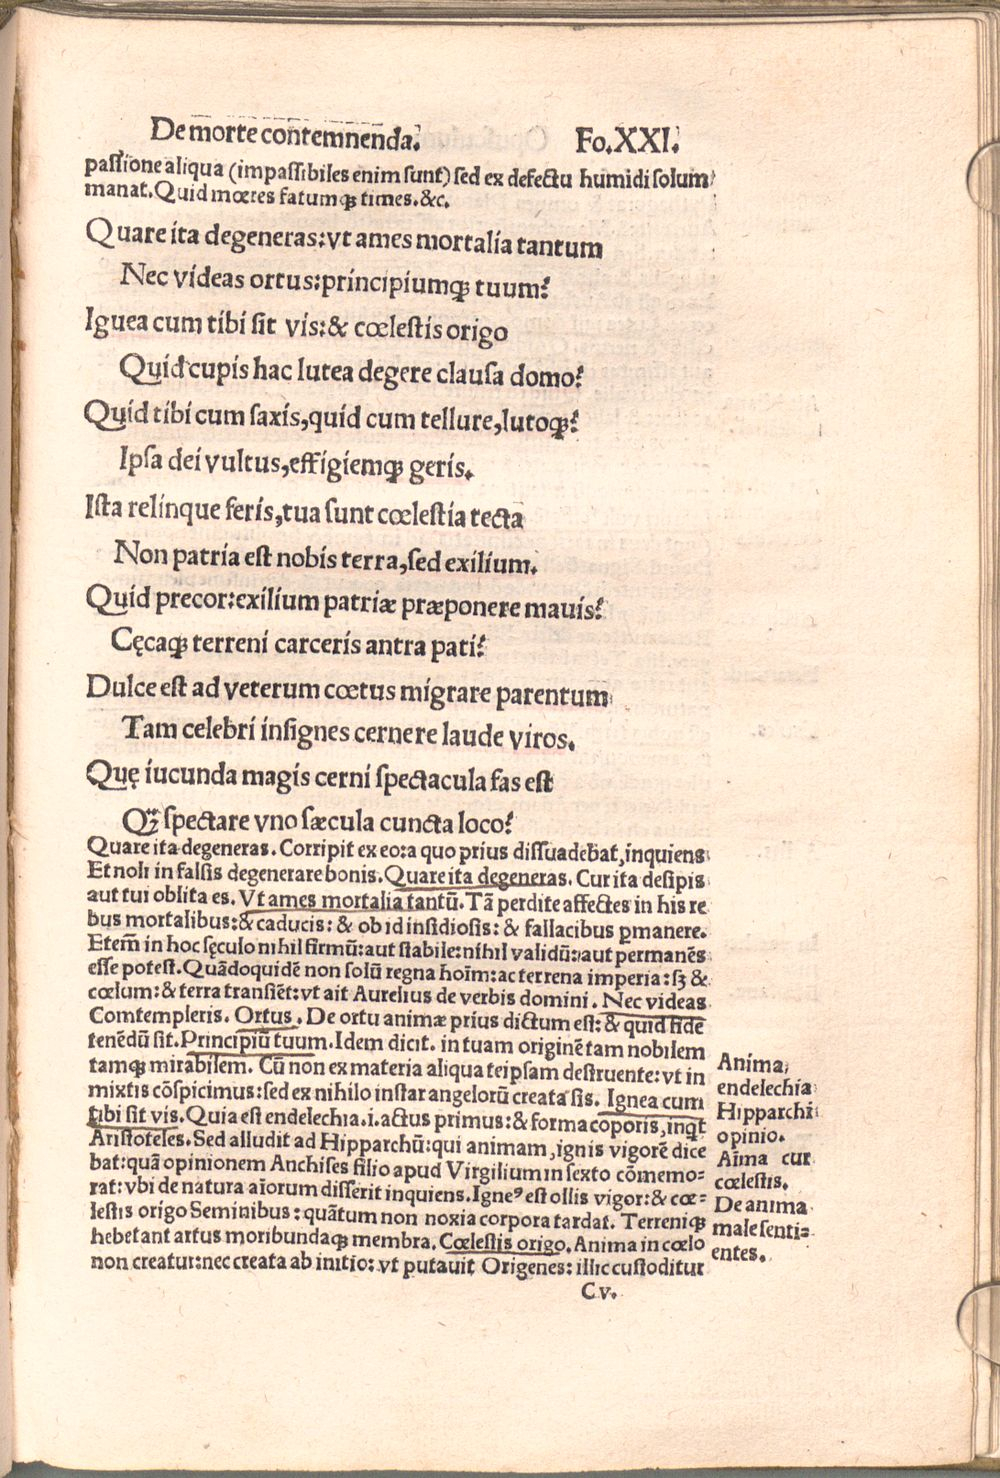 De morte contemnenda. Fo.XXI.
passione aliqua (impassibiles enim sunt) sed ex defectu humidi solum
manat. Quid mœres fatumqꝫ times.&c.
Quare ita degeneras:vt ames mortalia tantum
Nec videas ortus:principiumqꝫ tuum?
Iguea cum tibi sit vis:& cœlestis origo
Quid cupis hac lutea degere clausa domo?
Quid tibi cum saxis,quid cum tellure,lutoqꝫ?
Ipsa dei vultus,effigiemqꝫ geris.
Ista relinque feris,tua sunt cœlestia tecta
Non patria est nobis terra,sed exilium.
Quid precor:exilium patriæ præponere mauis?
Cęcaqꝫ terreni carceris antra pati?
Dulce est ad veterum cœtus migrare parentum
Tam celebri insignes cernere laude viros.
Quę iucunda magis cerni spectacula fas est
Qꝫ̃ spectare vno sæcula cuncta loco?
Quare ita degeneras. Corripit ex eo:a quo prius dissuadebat,inquiens
Et noli in falsis degenerare bonis. Quare ita degeneras. Cur ita desipis
aut tui oblita es. Vt ames mortalia tantū. Tā perdite affectes in his re
bus mortalibus:& caducis:& ob id insidiosis:& fallacibus ꝑmanere.
Etem̄ in hoc sęculo nihil firmū:aut stabile:nihil validū:aut permanēs
esse potest. Quādoquidē non solū regna hoīm:ac terrena imperia:sꝫ &
cœlum:& terra transiēt:vt ait Aurelius de verbis domini. Nec videas
Comtempleris. Ortus. De ortu animæ prius dictum est:& quid fidē
tenēdū sit. Principiū tuum. Idem dicit. in tuam originē tam nobilem
tamqꝫ mirabilem. Cū non ex materia aliqua teipsam destruente:vt in
mixtis cōspicimus:sed ex nihilo instar angelorū creata sis. Ignea cum
tibi sit vis. Quia est endelechia.i.actus primus:& forma coporis,inqͭ
Aristoteles. Sed alludit ad Hipparchū:qui animam,ignis vigorē dice
bat:quā opinionem Anchises filio apud Virgilium in sexto cōmemo-
rat:vbi de natura aīorum disserit inquiens. Igneꝰ est ollis vigor:& cœ-
lestis origo Seminibus:quātum non noxia corpora tardat. Terreniqꝫ
hebetant artus moribundaqꝫ membra. Cœlestis origo. Anima in cœlo
non creatur:nec creata ab initio:vt putauit Origenes:illic custoditur
C v.
Anima
endelechia
Hipparchi
opinio.
Aīma cur
cœlestis.
De anima
male senti-
entes.